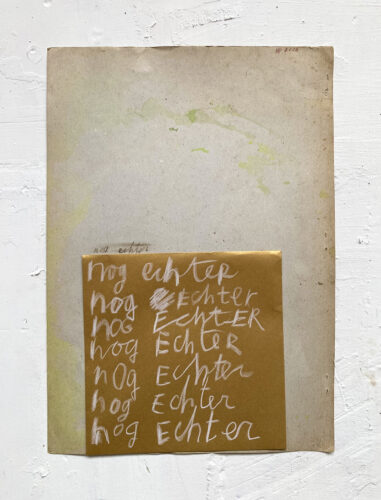 nog echter
nog echter
nog Echter
nog EchtER
nog Echter
nog Echter
hog Echter
hog Echter